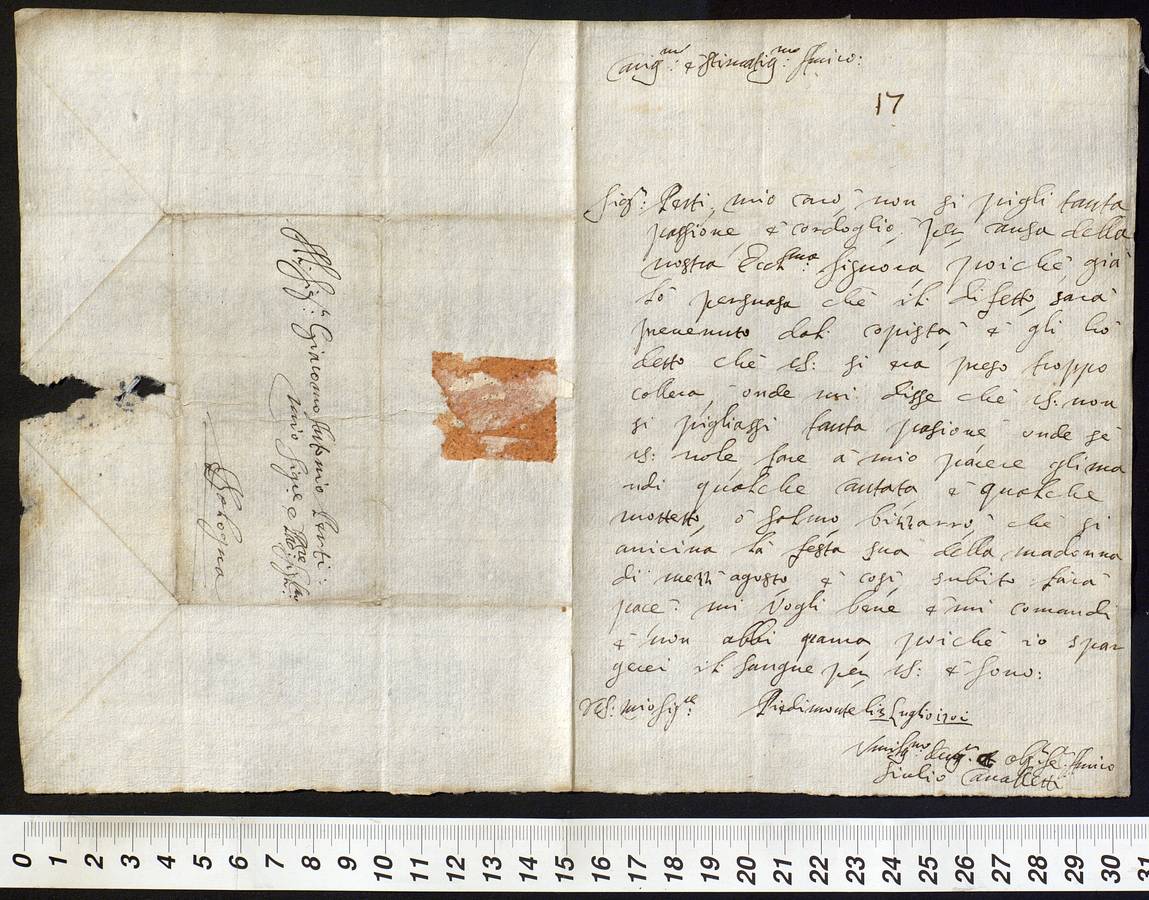 Carig.mo e Stimatig.mo Amico:
17
Sig.r Perti, mio caro, non si pigli tanta
passione e cordoglio, per causa della
nostra Ecc.ma Signora poiche, già
l'ò persuasa che il difetto, sarà
prevenuto dal copista, e gli hò
detto che VS: si era preso troppo
collera, onde mi disse che VS: non
si pigliassi tanta pasione onde se
VS: vole fare a mio piacere gli ma
ndi qualche cantata, e qualche
mottetto, ò Salmo, bizzarro, che si
avicina là festa sua della madonna
di mezz'agosto, e cosi, subito farà
pace: mi vogli bene e mi comandi
e non abbi paura, poiche io spar
gerei il sangue per VS: e sono:
Di VS: mio Sig.re
Piedimonte li Luglio 1701
Umilss.mo Amico
Giulio Cavalletti
All Sig.r Giacomo Antonio Perti:
mio Sig.re e
Bologna
0 1 2 3 4 5 6 7 8 9 10 11 12 13 14 15 16 17 18 19 20 21 22 23 24 25 26 27 28 29 30 31